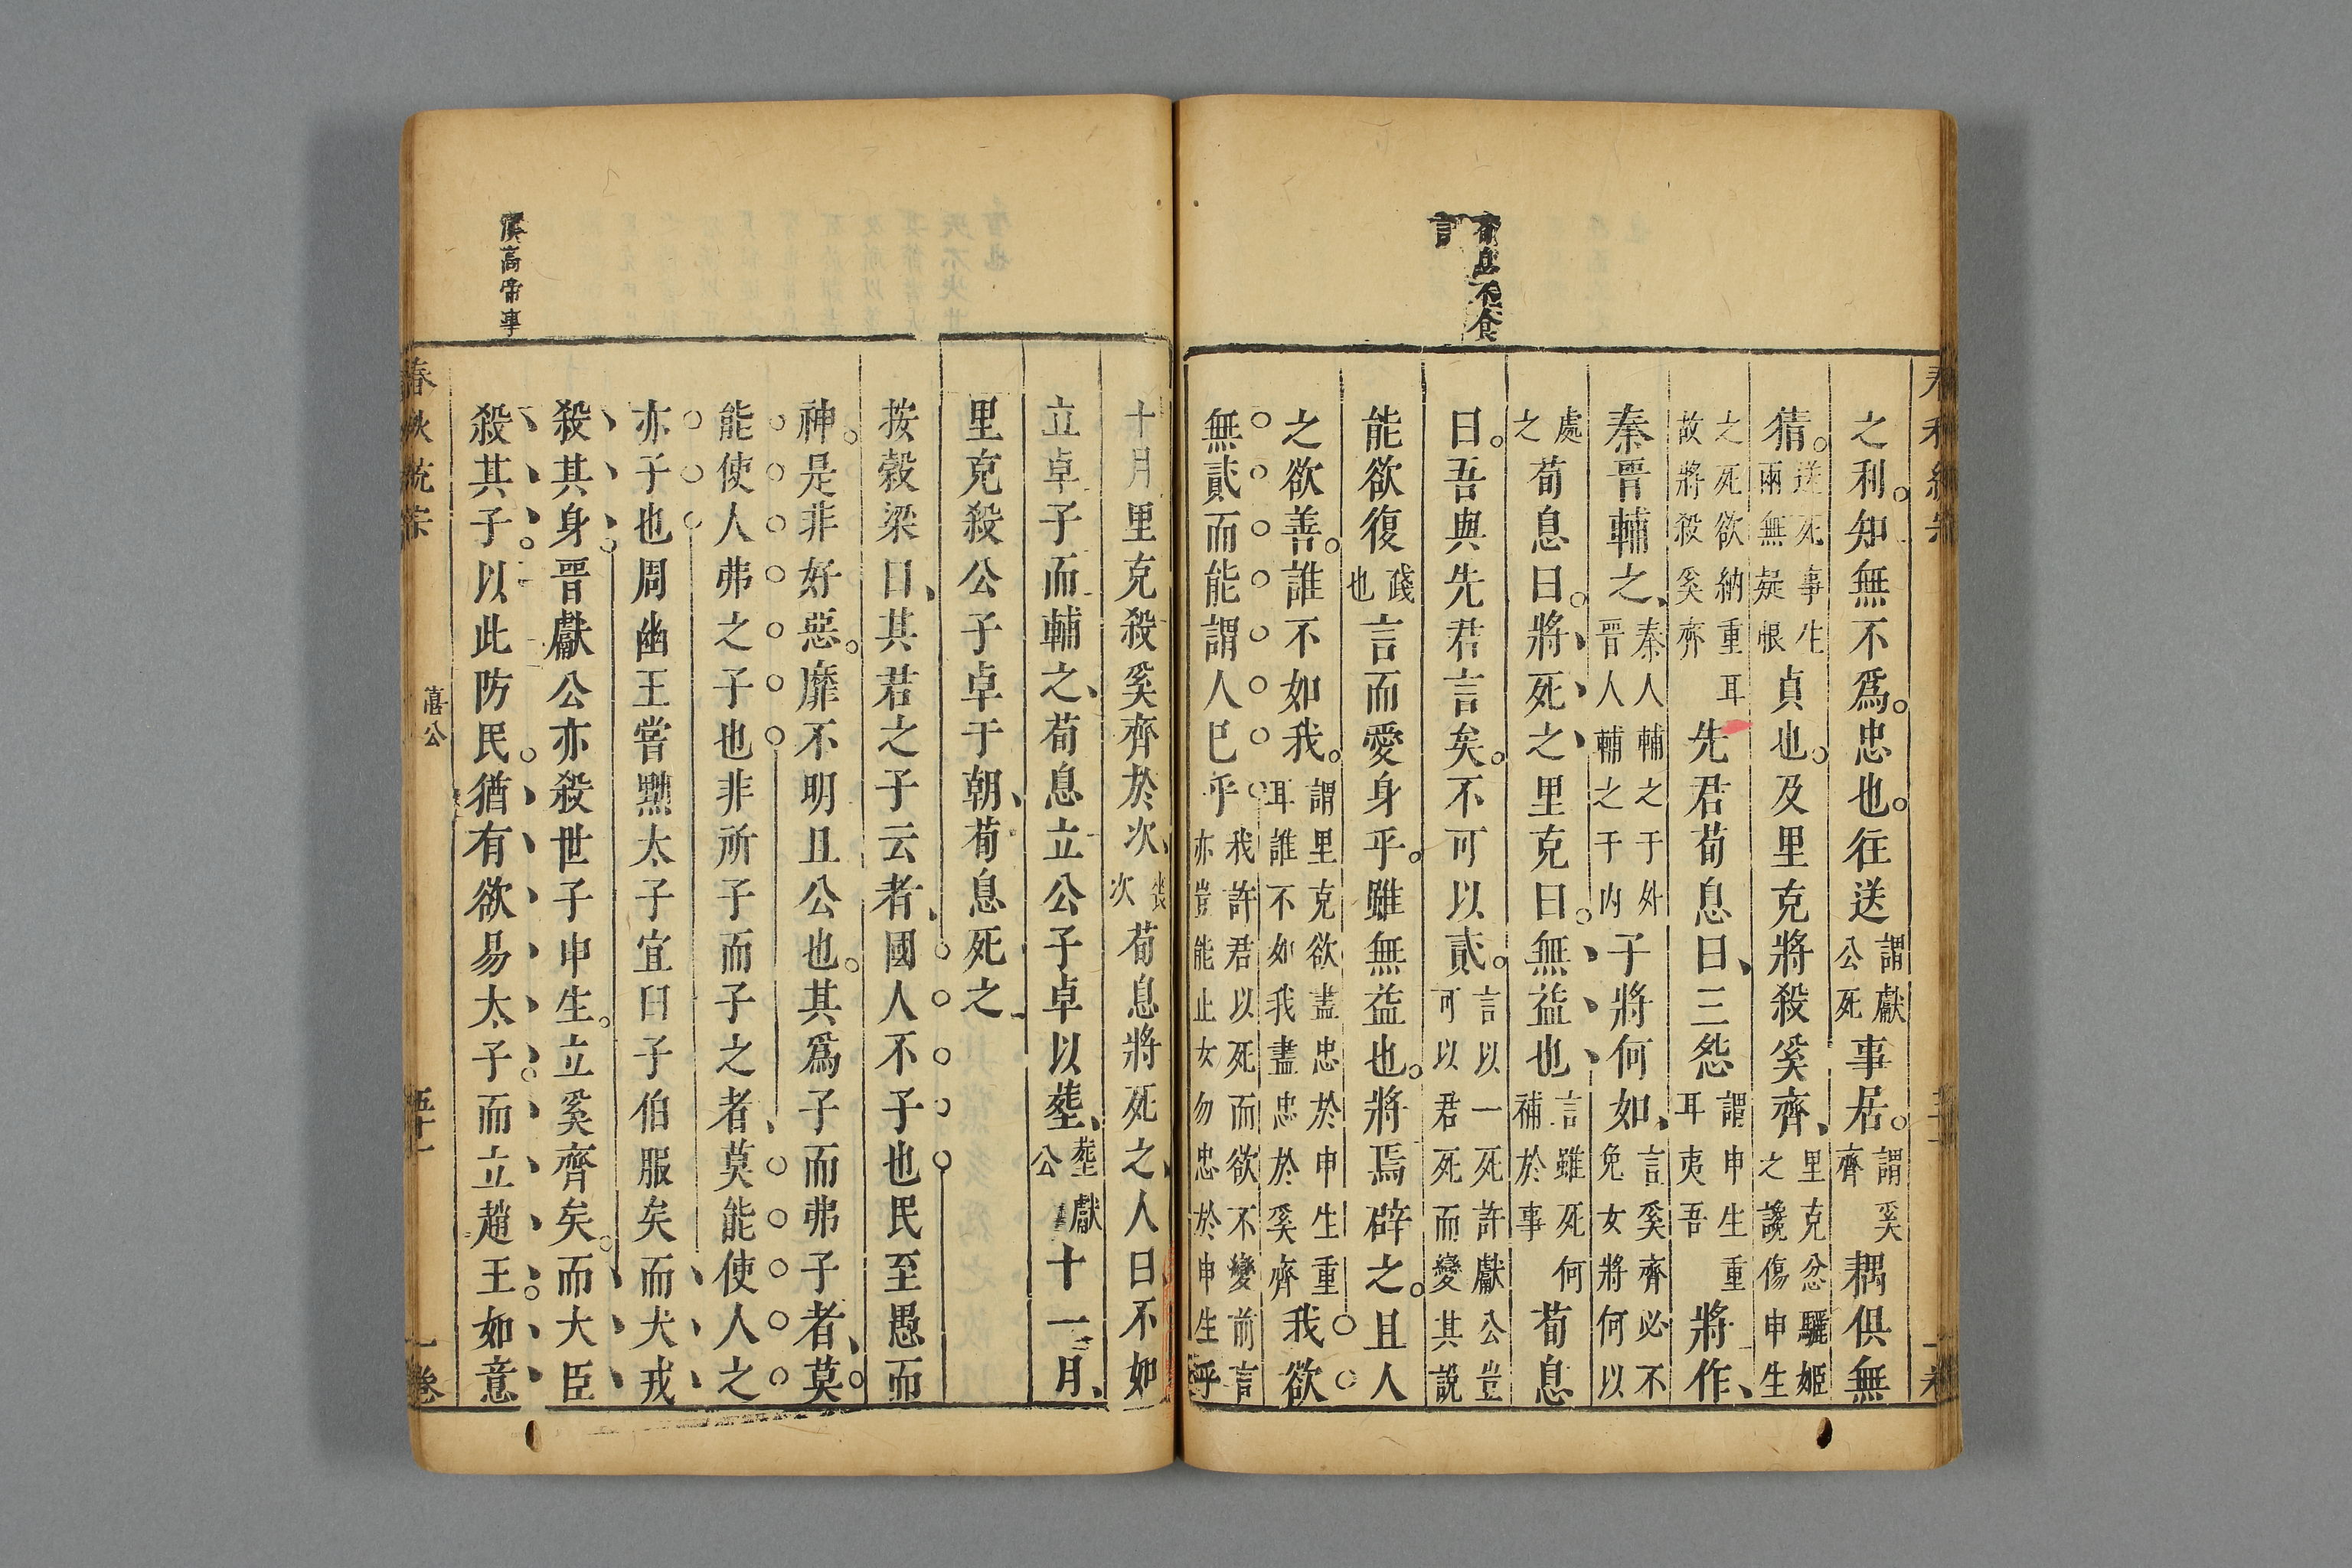 荀息不食
言
之利。知無不爲。忠也。往送謂獻公死事居。謂奚齊耦俱無
猜。送死事生兩無疑恨貞也。及里克將殺奚齊、里克忿驪姬之讒傷申生
之死欲納重耳故將殺奚齊先君荀息曰、三怨謂申生重耳夷吾將作、
秦晉輔之、秦人輔之于外晉人輔之于內子將何如、言奚齊必不免女將何以
處之荀息曰。將死之里克曰。無益也言雖死何補於事荀息
曰。吾與先君言矣。不可以貳。言以一死許獻公豈可以君死而變其說
能欲復踐也言而愛身乎。雖無益也。將焉辟之。且人
之欲善。誰不如我。謂里克欲盡忠於申生重耳誰不如我盡忠於奚齊我欲
無貳而能謂人已乎我許君以死而欲不變前言亦豈能止女勿忠於申生乎
十月里克殺奚齊於次、喪次荀息將死之、人曰不如
立卓子而輔之、荀息立公子卓以塟、塟獻公十一月、
里克殺公子卓于朝、荀息死之
按穀梁曰、其君之子云者、國人不子也民至愚而
神。是非好惡。靡不明且公也。其爲子而弗子者、莫
能使人弗之子也非所子而子之者、莫能使人之
亦子也周幽王嘗黜太子宜臼子伯服矣而犬戎
殺其身晉獻公亦殺世子申生。立奚齊矣。而大臣
殺其子。以此防民。猶有欲易太子。而立趙王。如意
漢高帝事
春秋統宗
僖公
五十一
一卷